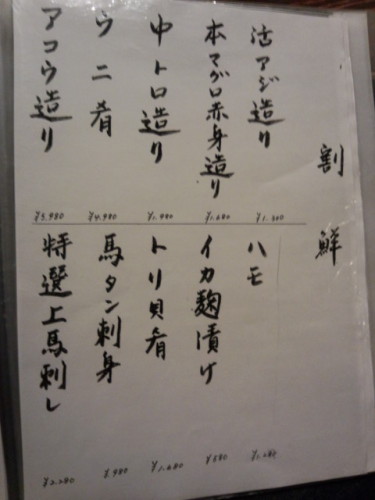 割鮮
活アジ造り
¥1.300
本マグロ赤身造り
¥1.680
中トロ造り
¥1.980
ウニ肴
¥4.980
アコウ造り
¥3.980
ハモ
¥1.280
イカ麹漬け
¥580
トリ貝肴
¥1.680
馬タン刺身
¥.980
特選上馬刺し
¥2.280